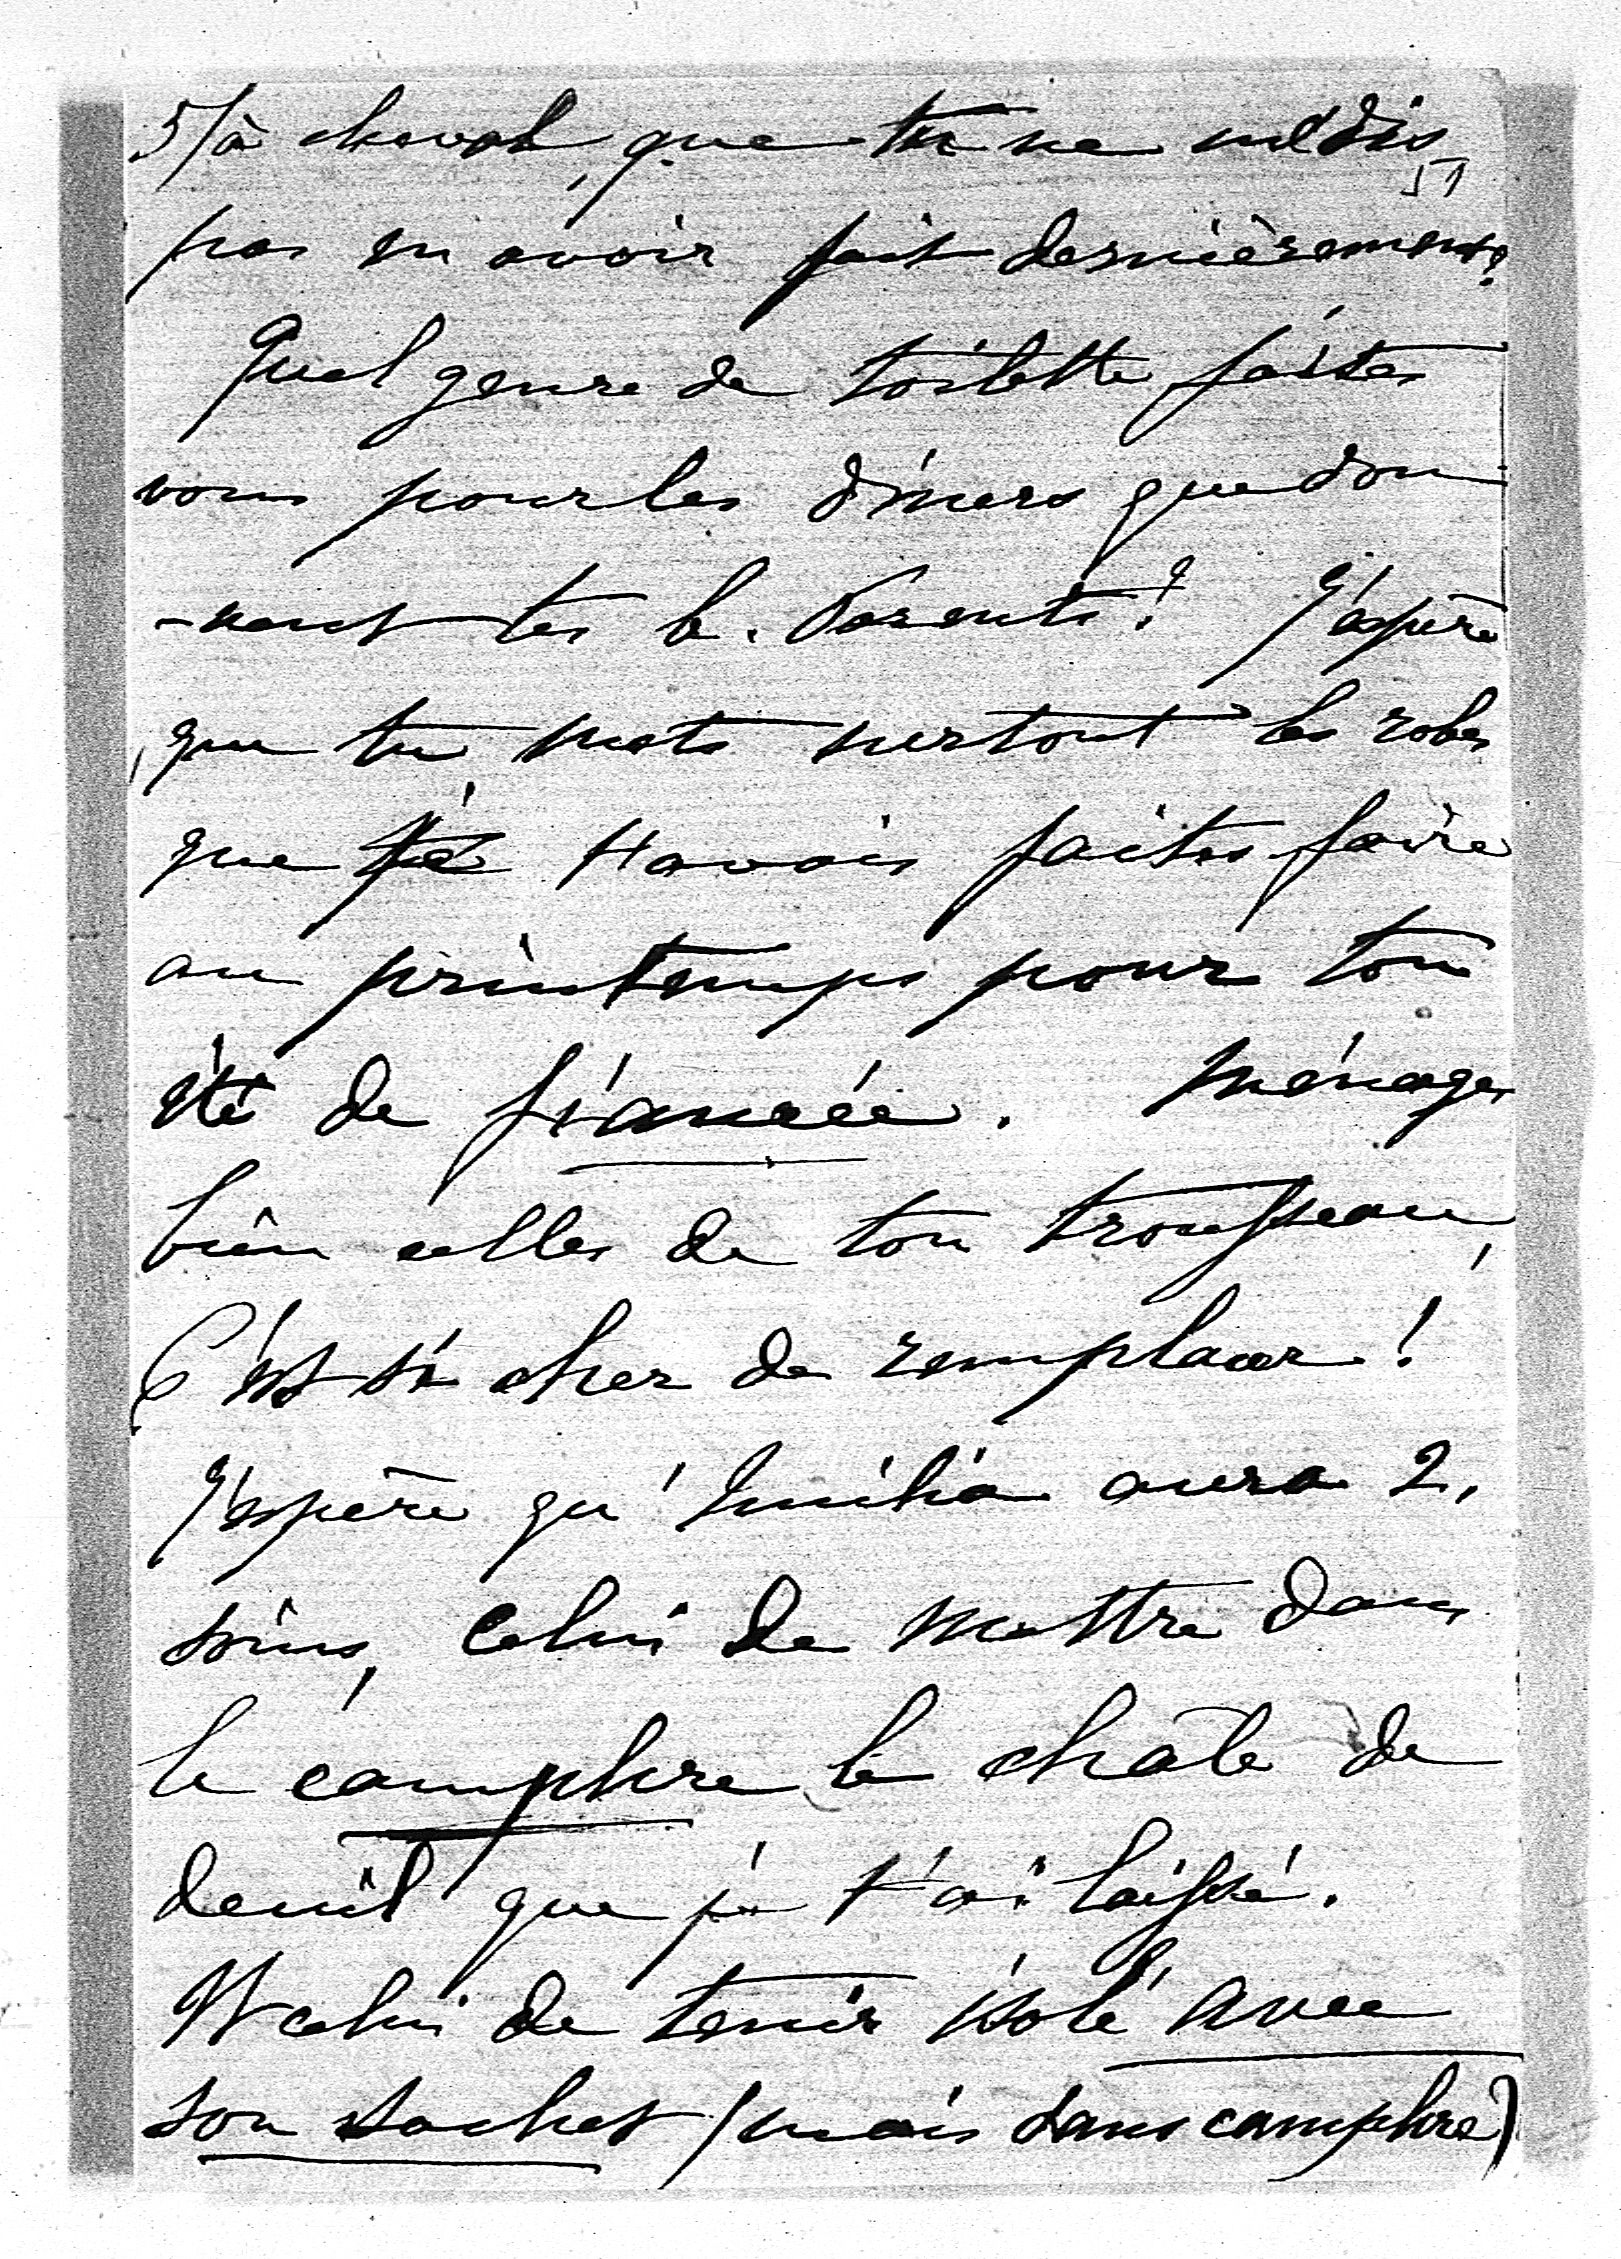 5/à cheval, que tu ne me dis
51
pas m'avoir fait dernièrement?
Quel genre de toilette faites
vous pour les dîners que don
-nent tes b. Parents? J'espère
que tu mets surtout les robes
que tu t'avais faites faire
au printemps pour ton
été de fiancée. Ménages
bien celles de ton trousseau,
C'est si cher de remplacer!
J'espère qu'Emilia aura 2,
soins, celui de mettre dans
le camphre le châle de
deuil que je t'ai laissé.
Et celui de tenir isolé avec
son sachet (mais sans camphre)